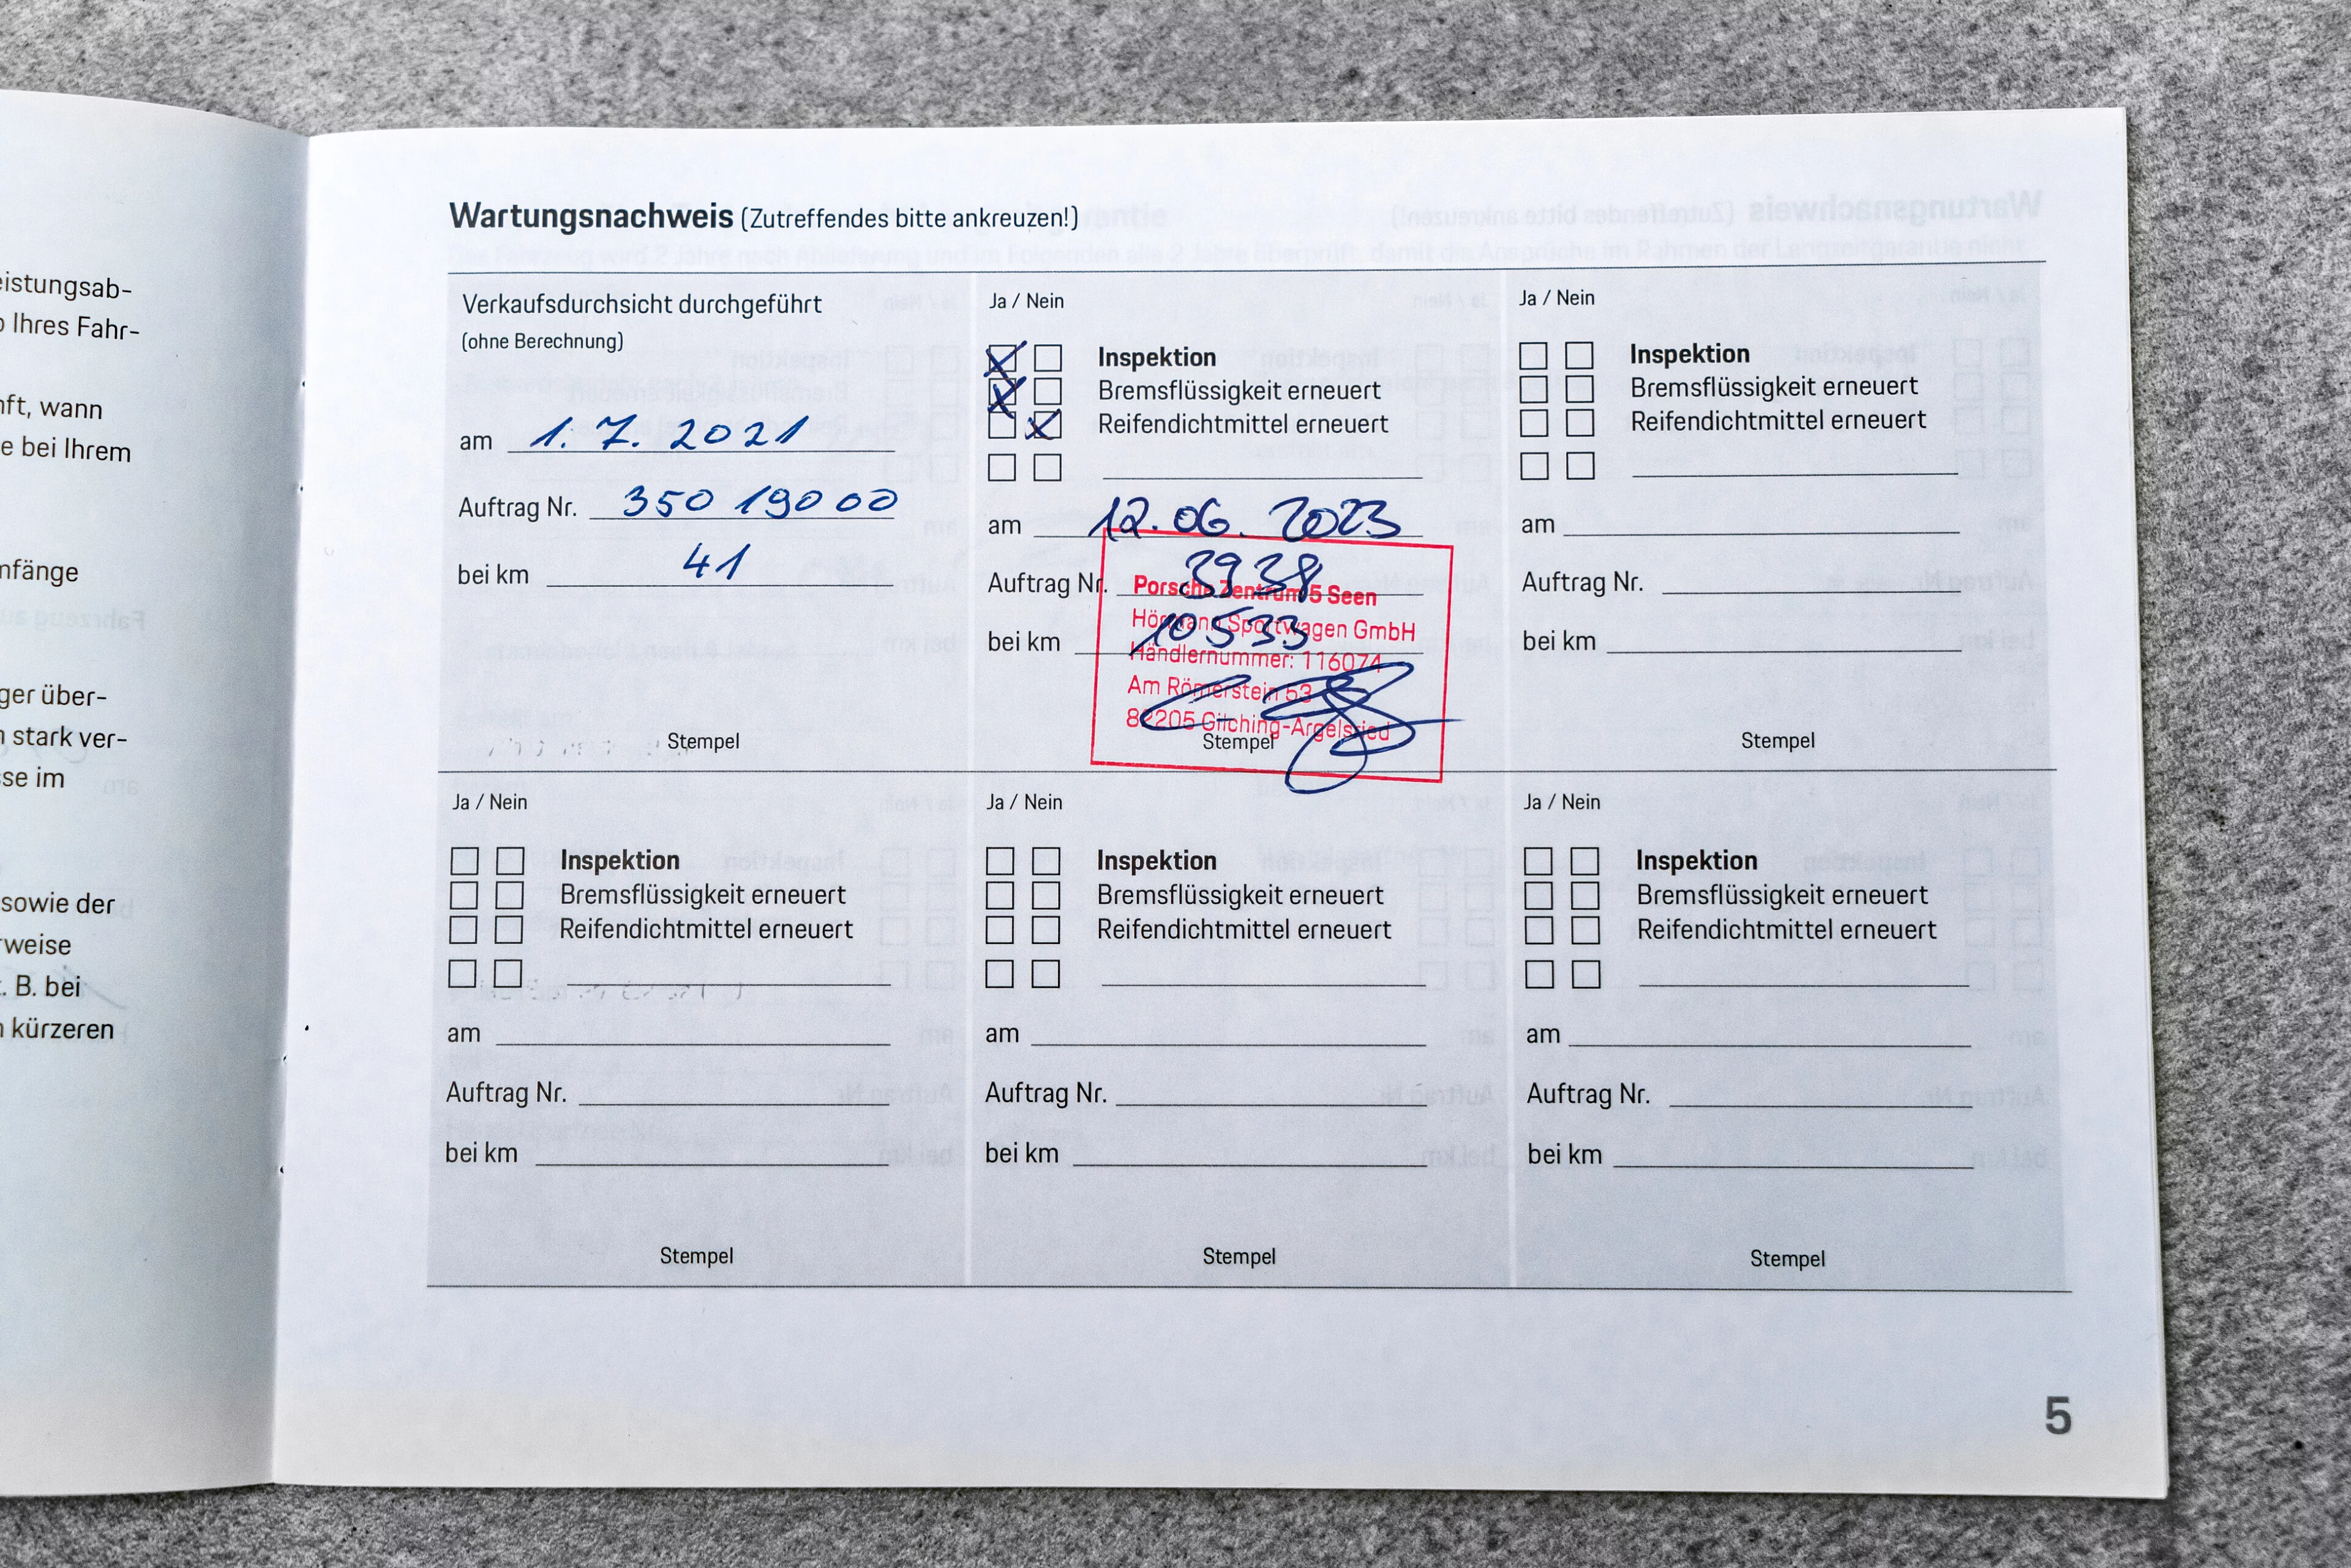 eistungsab-
o Ihres Fahr-
nft, wann
e bei Ihrem
nfänge
ger über-
n stark ver-
sse im
sowie der
rweise
z. B. bei
n kürzeren
Wartungsnachweis (Zutreffendes bitte ankreuzen!)
Verkaufsdurchsicht durchgeführt
(ohne Berechnung)
am 1. 7. 2021
Auftrag Nr. 350 190 00
bei km 41
Stempel
Ja / Nein
Inspektion
Bremsflüssigkeit erneuert
Reifendichtmittel erneuert
am 12.06. 2023
Auftrag Nr. 3938
bei km 10533
Porsche Zentrum 5 Seen
Hörmann Sportwagen GmbH
Händlernummer: 116074
Am Römerstein 53
82205 Gilching-Argelsried
Stempel
Ja / Nein
Inspektion
Bremsflüssigkeit erneuert
Reifendichtmittel erneuert
am
Auftrag Nr.
bei km
Stempel
Ja / Nein
Inspektion
Bremsflüssigkeit erneuert
Reifendichtmittel erneuert
am
Auftrag Nr.
bei km
Stempel
Ja / Nein
Inspektion
Bremsflüssigkeit erneuert
Reifendichtmittel erneuert
am
Auftrag Nr.
bei km
Stempel
Ja / Nein
Inspektion
Bremsflüssigkeit erneuert
Reifendichtmittel erneuert
am
Auftrag Nr.
bei km
Stempel
5